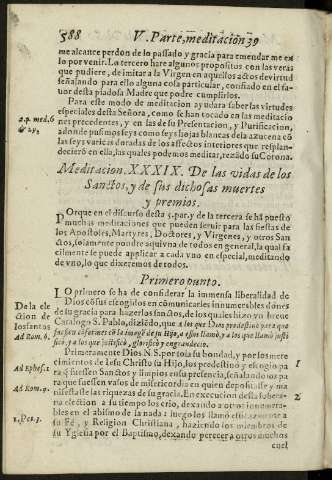 588 V. Parte, meditacion 39
me alcance perdon de lo passado y gracia para emendar me en
lo por venir. Lo tercero hare algunos propositos con las veras
que pudiere, de imitar a la Virgen en aquellos actos de virtud
señalando para ello alguna cosa particular, confiado en el fa-
uor desta piadosa Madre que podre cumplirlos.
Para este modo de meditacion ayudara saber las virtudes
especiales desta Señora, como se han tocado en las meditacio
nes precedentes, y en las de su Presentacion, y Purificacion,
adonde pusimos seys como seys hojas blancas dela açucena cõ
las seys varicas doradas de los affectos interiores que resplan-
decierõ en ella, las quales podemos meditar, rezãdo su Corona.
2.p. med.6
Meditacion. XXXIX. De las vidas de los
Sanctos, y de sus dichosas muertes
y premios.
Porque en el discurso desta 5. par. y de la tercera se hã puesto
muchas meditaciones que pueden seruir para las fiestas de
los Apostoles, Martyres, Doctores, y Virgenes, y otros San
ctos, solamente pondre aqui vna de todos en general, la qual fa
cilmente se puede applicar a cada vno en especial, meditando
de vno, lo que diremos de todos.
Primero punto.
LO primero se ha de considerar la immensa liberalidad de
Dios cõ sus escogidos en cõmunicarles innumerables dones
de su gracia para hazerlos sanctos, de los quales hizo vn breue
Catalogo S. Pablo, diziẽdo, que a los que Dios predestinò para que
fuessen cõformes cõ la imagẽ de su Hijo, a essos llamò, y a los que llamò justi
ficò, y a los que justificò, glorificò y engrandecio.
De la ele
ction de
los santos
Ad Rom. 8.
Primeramente Dios N.S. por sola su bondad, y por los mere
cimientos de Iesu Christo su Hijo, los predestinò y eligio pa
ra q̃ fuessen Sanctos y limpios en su presencia, señalando los pa
ra que fuessen vasos de misericordia en quien depositasse y ma
nifestasse las riquezas de su gracia. En execucion desta sobera-
na election a su tiempo los crio, dexando a otros innumera-
bles en el abismo de la nada: luego los llamò eficazmente a
su Fè, y Religion Christiana, haziendo los miembros de
su Yglesia por el Baptismo, dexando perecer a otros muchos
Ad Ephes. 1
Ad Rom. 9.
1. Pet. 3.
1
2